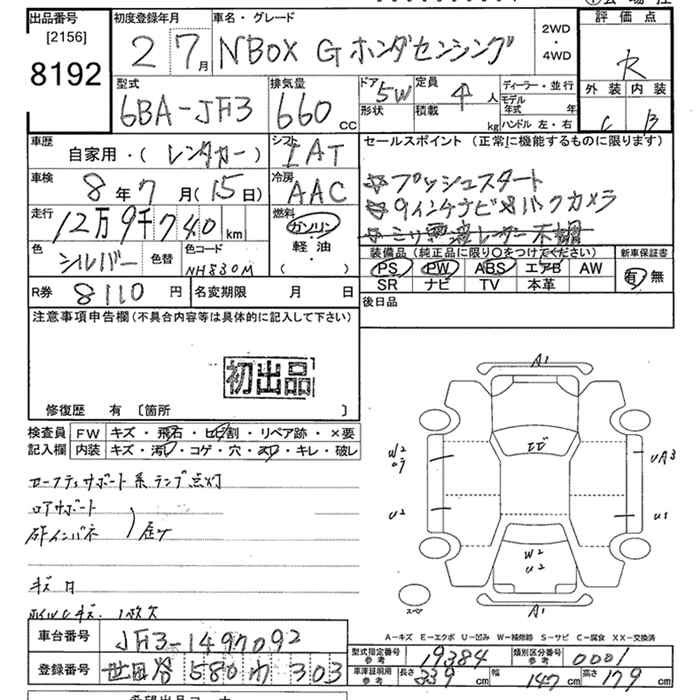 出品番号 初度登録年月 車名・グレード 評価点
[2156] 2 7月 NBOX G ホンダセンシング 2WD・4WD R
8192
型式 排気量 ドア 定員 ディーラー・並行 外装 内装
6BA-JF3 660cc 5W 4人 モデル年式 年
形状 積載 kg ハンドル 左・右 C B
車歴 シフト セールスポイント (正常に機能するものに限ります)
自家用・(レンタカー) IAT
車検 8年7月(15日) 冷房 AAC ☆プッシュスタート
走行 12万9千740km 燃料 ☆9インチナビ ☆バックカメラ
ガソリン
軽油
・( )
色 シルバー 色替 色コード NH830M
装備品 (純正品に限り○をつけてください) 新車保証書
PS PW ABS エアB AW 有 無
SR ナビ TV 本革
R券 8110円 名変期限 月 日 後日品
注意事項申告欄(不具合内容等は具体的に記入して下さい)
初出品
修復歴 有 [箇所 ]
検査員 FW キズ・飛石・ヒビ割・リペア跡・×要
記入欄 内装 キズ・汚レ・コゲ・穴・スリ・キレ・破レ
セーフティサポート系ランプ点灯
ロアサポート
キズ 凹
ホイルCキズ 1枚欠
A1
W2
U2
UA3
U2
U1
W2
U2
A1
スペア
A-キズ E-エクボ U-凹み W-補修跡 S-サビ C-腐食 XX-交換済
車台番号 JF3-1497092 型式指定番号 参考 19384 類別区分番号 参考 0001
登録番号 世田谷 580 わ 303 車庫証明用 参考 長さ 339cm 幅 147cm 高さ 179cm
希望出品コーナー